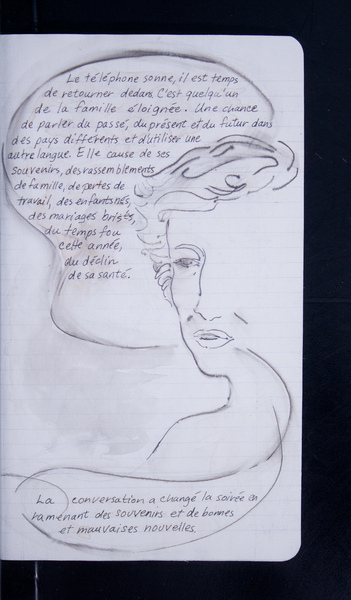 Le téléphone sonne, il est temps
de retourner dedans. C'est quelqu'un
de la famille éloignée. Une chance
de parler du passé, du présent et du futur dans
des pays différents et d'utiliser une
autre langue. Elle cause de ses
souvenirs, des rassemblements
de famille, de pertes de
travail, des enfants nés,
des mariages brisés,
du temps fou
cette année,
du déclin
de sa santé.
La conversation a changé la soirée en
ramenant des souvenirs et de bonnes
et mauvaises nouvelles.